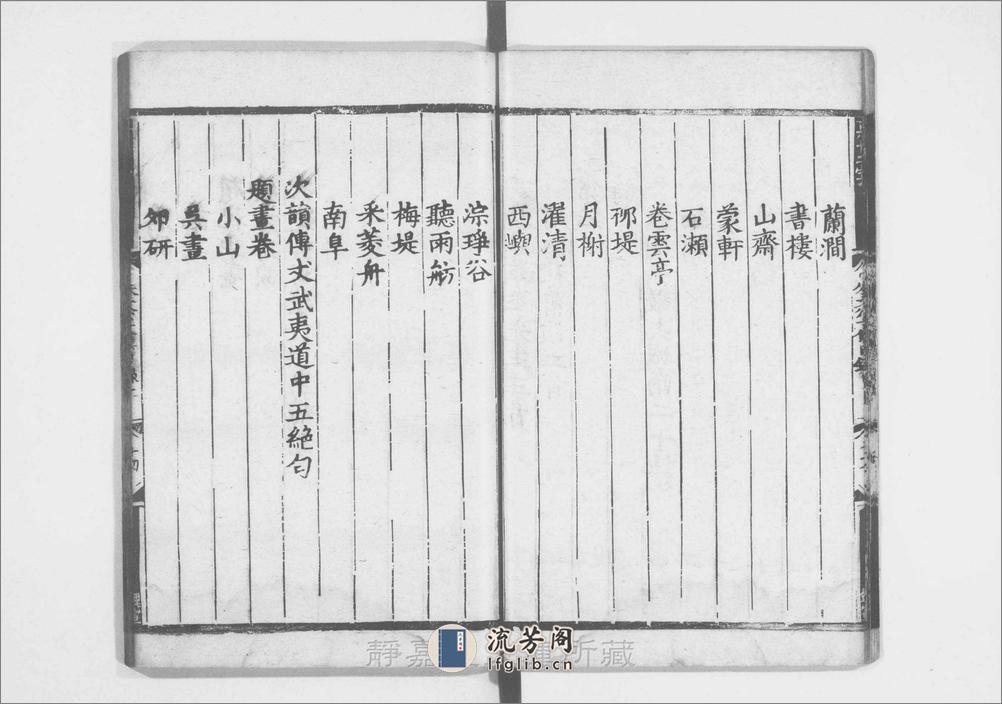 蘭澗
書樓
山齋
蒙軒
石瀨
卷雲亭
栁堤
月榭
濯清
西嶼
淙琤谷
聽雨舫
梅堤
采菱舟
南阜
次韻傅丈武夷道中五絶句
題畫卷
小山
吳畫
靜嘉 所藏
流芳阁
lfglib.cn